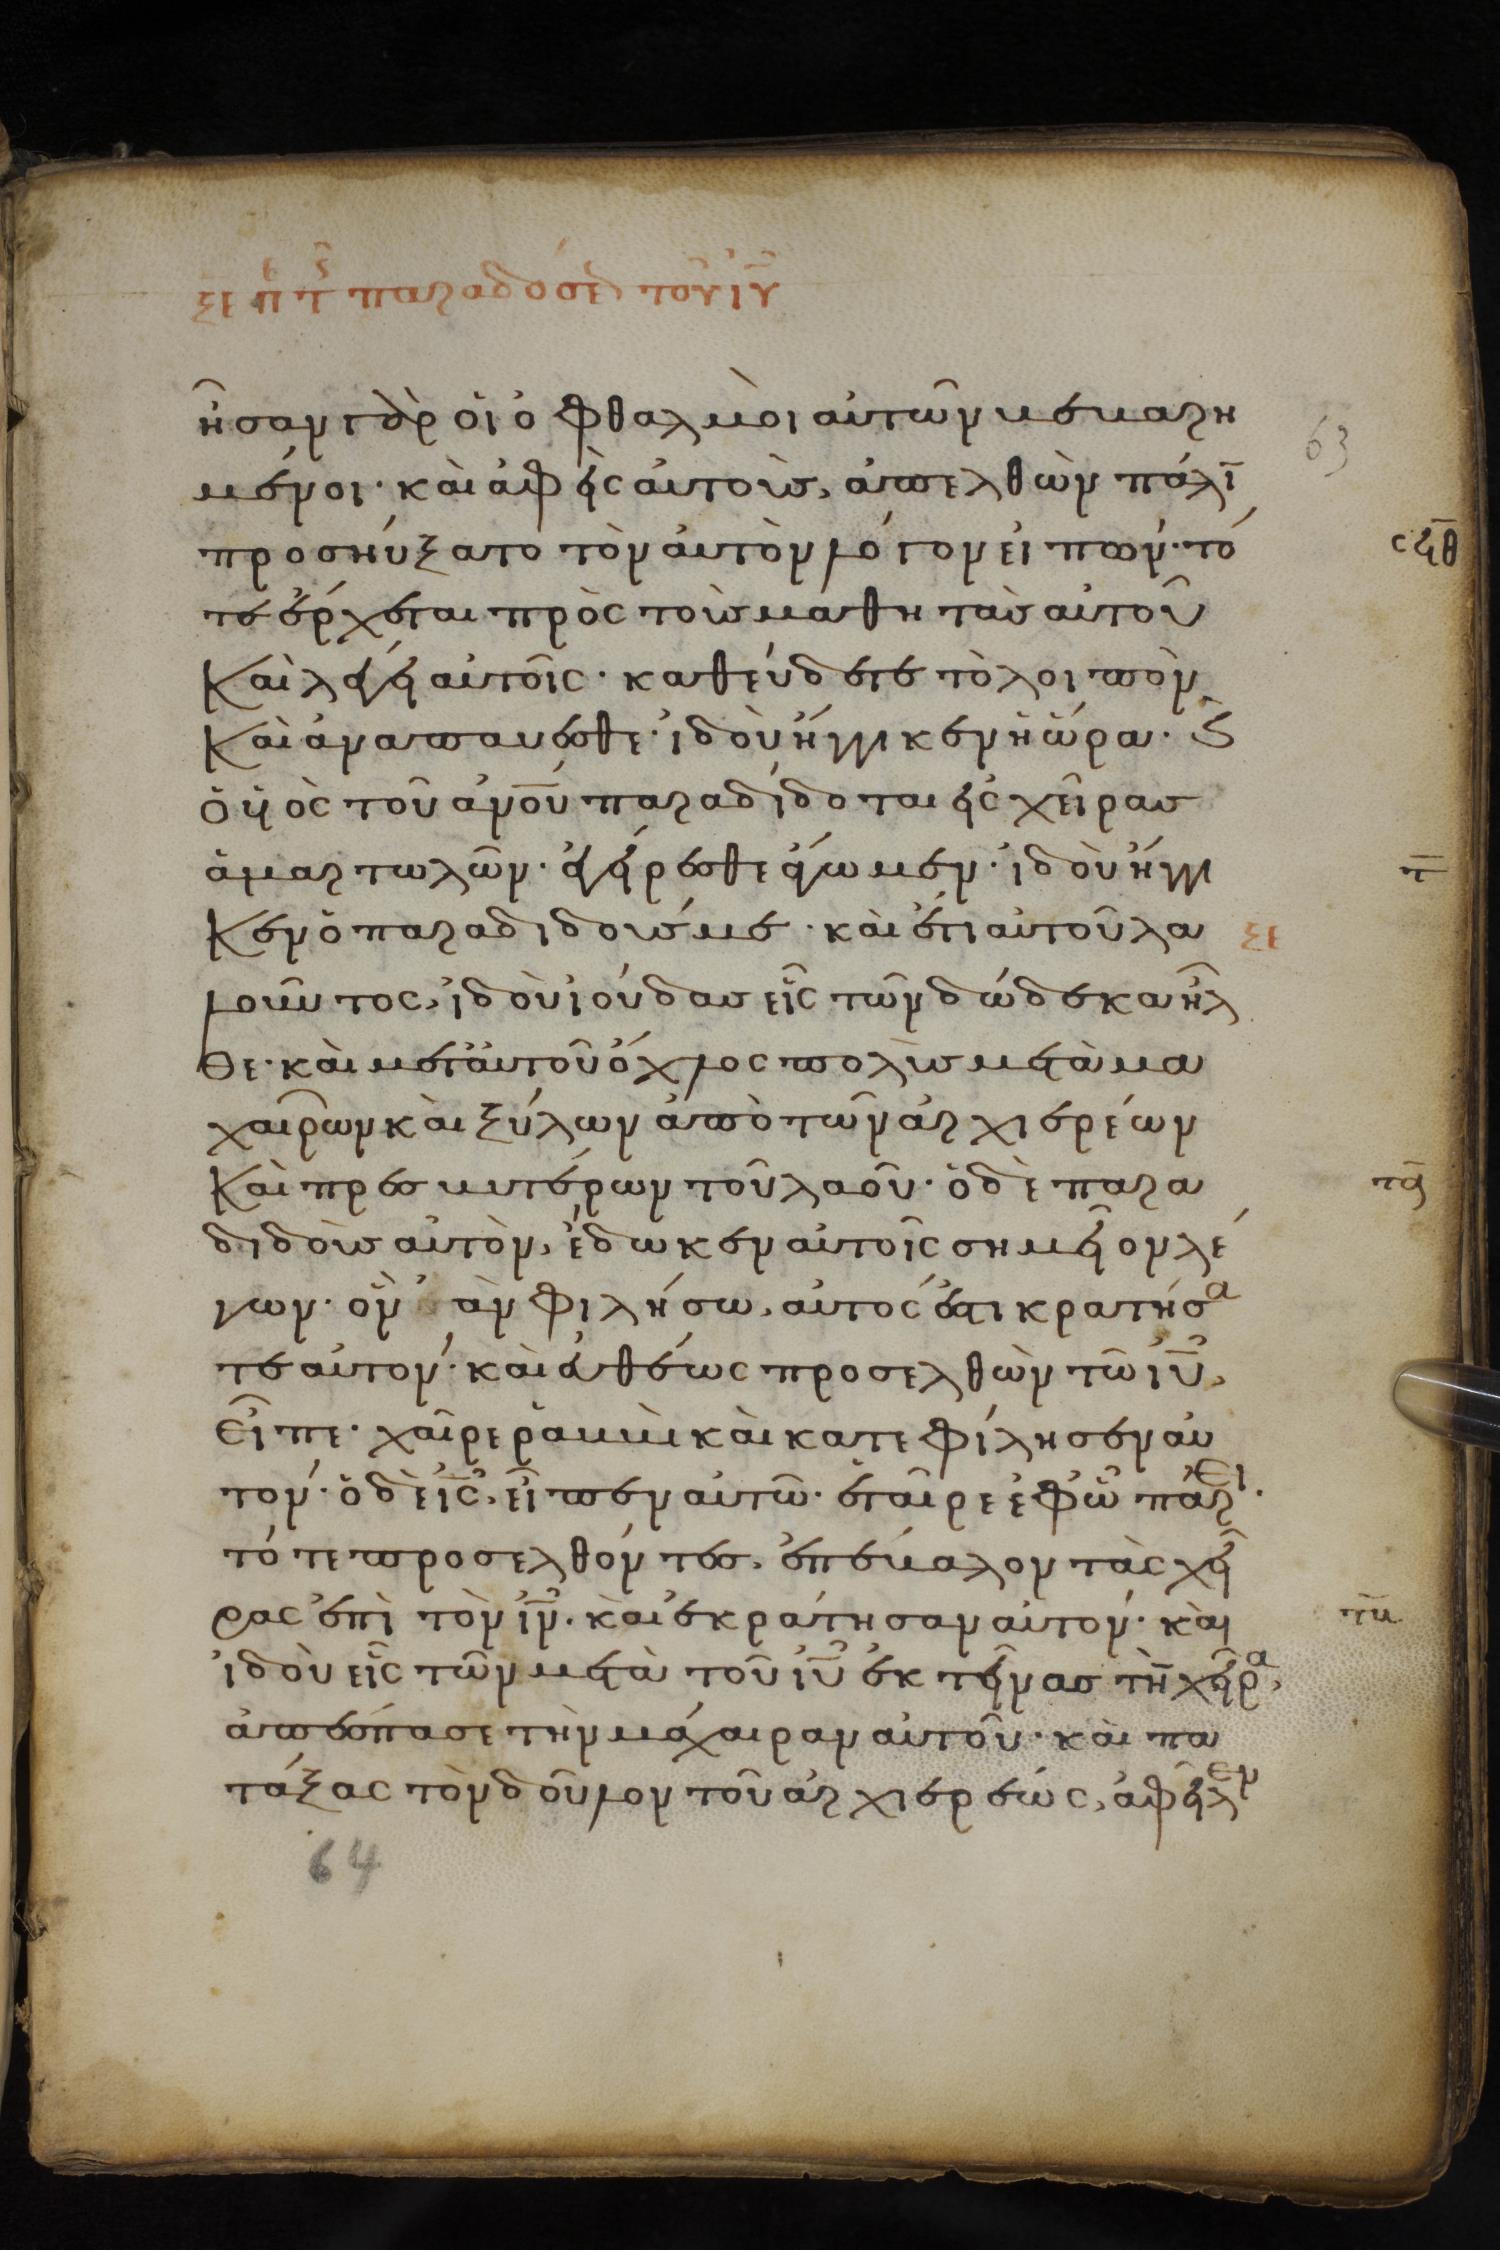 ξε περὶ τῆς παραδόσεως τοῦ ἰῦ
ἦσαν γὰρ οἱ ὀφθαλμοὶ αὐτῶν βεβαρη
63
μένοι· καὶ ἀφεὶς αὐτοὺς, ἀπελθὼν πάλῑ
προσηύξατο τὸν αὐτὸν λόγον εἰπών· τό
σϟθ
τε ἔρχεται πρὸς τοὺς μαθητὰς αὐτοῦ
Καὶ λέγει αὐτοῖς· καθεύδετε τὸ λοιπὸν
Καὶ ἀναπαύεσθε· ἰδοὺ ἤγγικεν ἡ ὥρα· ϗ
ὁ υἱὸς τοῦ ἀνοῦ παραδίδοται εἰς χεῖρας
ἁμαρτωλῶν· ἐγείρεσθε ἄγωμεν· ἰδοὺ ἤγγι
τ
Κεν ὁ παραδιδούς με· καὶ ἔτι αὐτοῦ λα
ξε
λοῦντος, ἰδοὺ ἰούδας εἷς τῶν δώδεκα ἦλ
θε· καὶ μετ αὐτοῦ ὄχλος πολὺς μετὰ μα
χαιρῶν καὶ ξύλων ἀπὸ τῶν ἀρχιερέων
Καὶ πρεσβυτέρων τοῦ λαοῦ· ὁ δὲ παρα
τα
διδοὺς αὐτὸν, ἔδωκεν αὐτοῖς σημεῖον λέ
γων· ὃν ἂν φιλήσω, αὐτός ἐστι κρατήσα
τε αὐτόν· καὶ εὐθέως προσελθὼν τῶ ἰῦ,
εἶπε· χαῖρε ῥαββὶ καὶ κατεφίλησεν αὐ
τόν· ὁ δὲ ἰς, εἶπεν αὐτῶ· ἑταῖρε ἐφ ὧ πάρει·
τότε προσελθόντες, ἐπέβαλον τὰς χεῖ
ρας ἐπὶ τὸν ἰν· καὶ ἐκράτησαν αὐτόν· καὶ
τβ
ἰδοὺ εἷς τῶν μετὰ τοῦ ἰῦ ἐκτείνας τὴν χεῖρα,
ἀπέσπασε τὴν μάχαιραν αὐτοῦ· καὶ πα
τάξας τὸν δοῦλον τοῦ ἀρχιερέως, ἀφεῖλεν
64